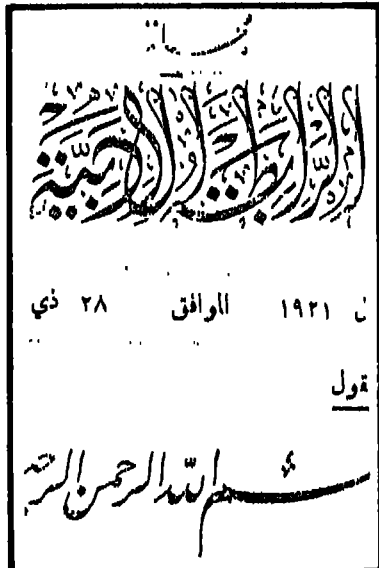 الرابطة الأدبية
ن ١٩٢١ الموافق ٢٨ ذي
قول
الله الرحمن